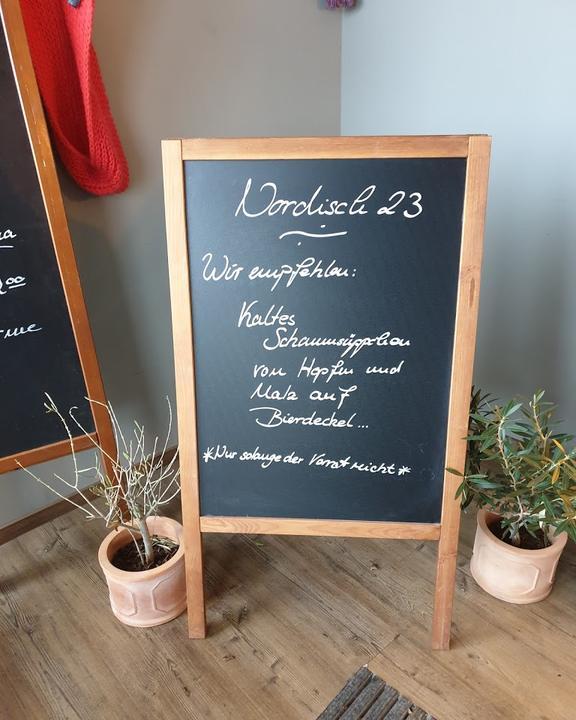 Nordisch 23
Wir empfehlen:
Kaltes
Schaumsüppchen
von Hopfen und
Malz auf
Bierdeckel...
*Nur solange der Vorrat reicht*